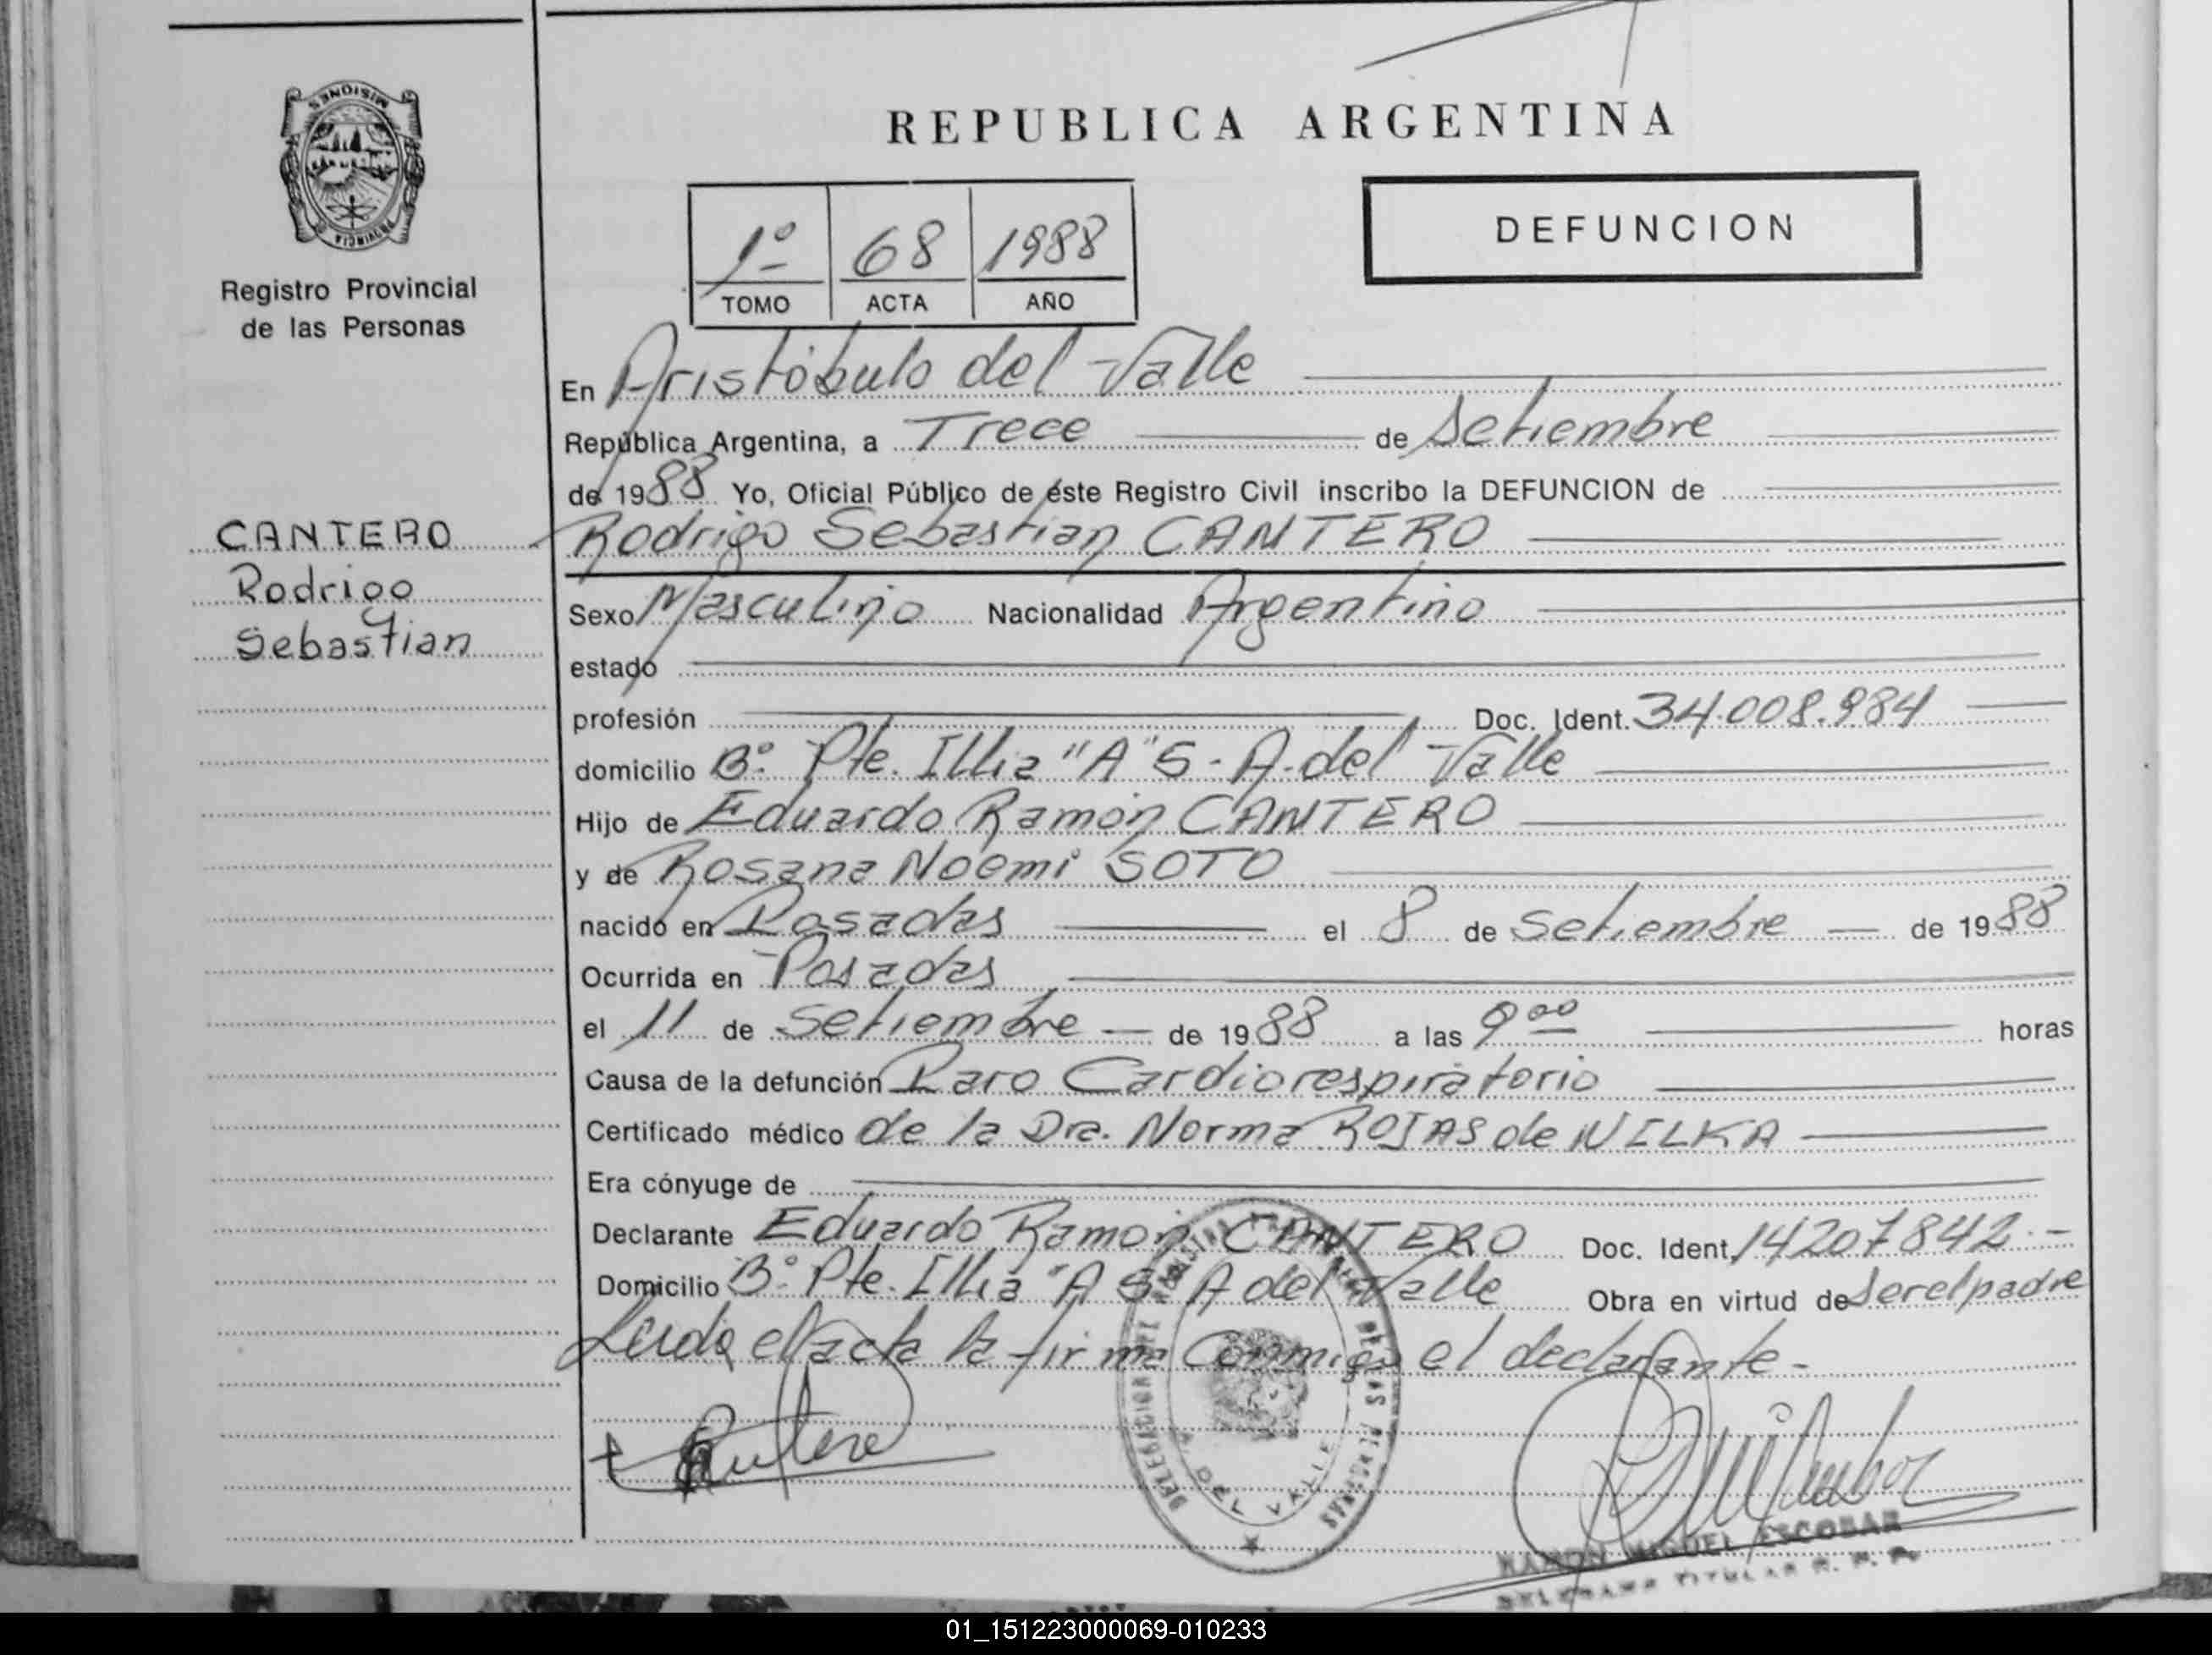 MISIONES
PROVINCIA
Registro Provincial
de las Personas
CANTERO
Rodrigo
Sebastian
REPUBLICA ARGENTINA
1º 68 1988
TOMO ACTA AÑO
DEFUNCION
En Aristóbulo del Valle
República Argentina, a Trece de Setiembre
de 1988 Yo, Oficial Público de éste Registro Civil inscribo la DEFUNCION de
Rodrigo Sebastian CANTERO
Sexo Masculino Nacionalidad Argentino
estado
profesión Doc. Ident. 34.008.984
domicilio Bº Pte. Illia "A" S - A. del Valle
Hijo de Eduardo Ramón CANTERO
y de Rosana Noemi SOTO
nacido en Posadas el 8 de Setiembre de 1988
Ocurrida en Posadas
el 11 de Setiembre de 1988 a las 9 00 horas
Causa de la defunción Paro Cardiorespiratorio
Certificado médico de la Dra. Norma ROJAS de WILKA
Era cónyuge de
Declarante Eduardo Ramón CANTERO Doc. Ident. 14207842.-
Domicilio Bº Pte. Illia "A S - A del Valle Obra en virtud de ser el padre
Leida el acta la firma Conmigo el declarante -
DEL VALLE
RAMON MIGUEL ESCOBAR
TITULAR R. P. P.
01_151223000069-010233